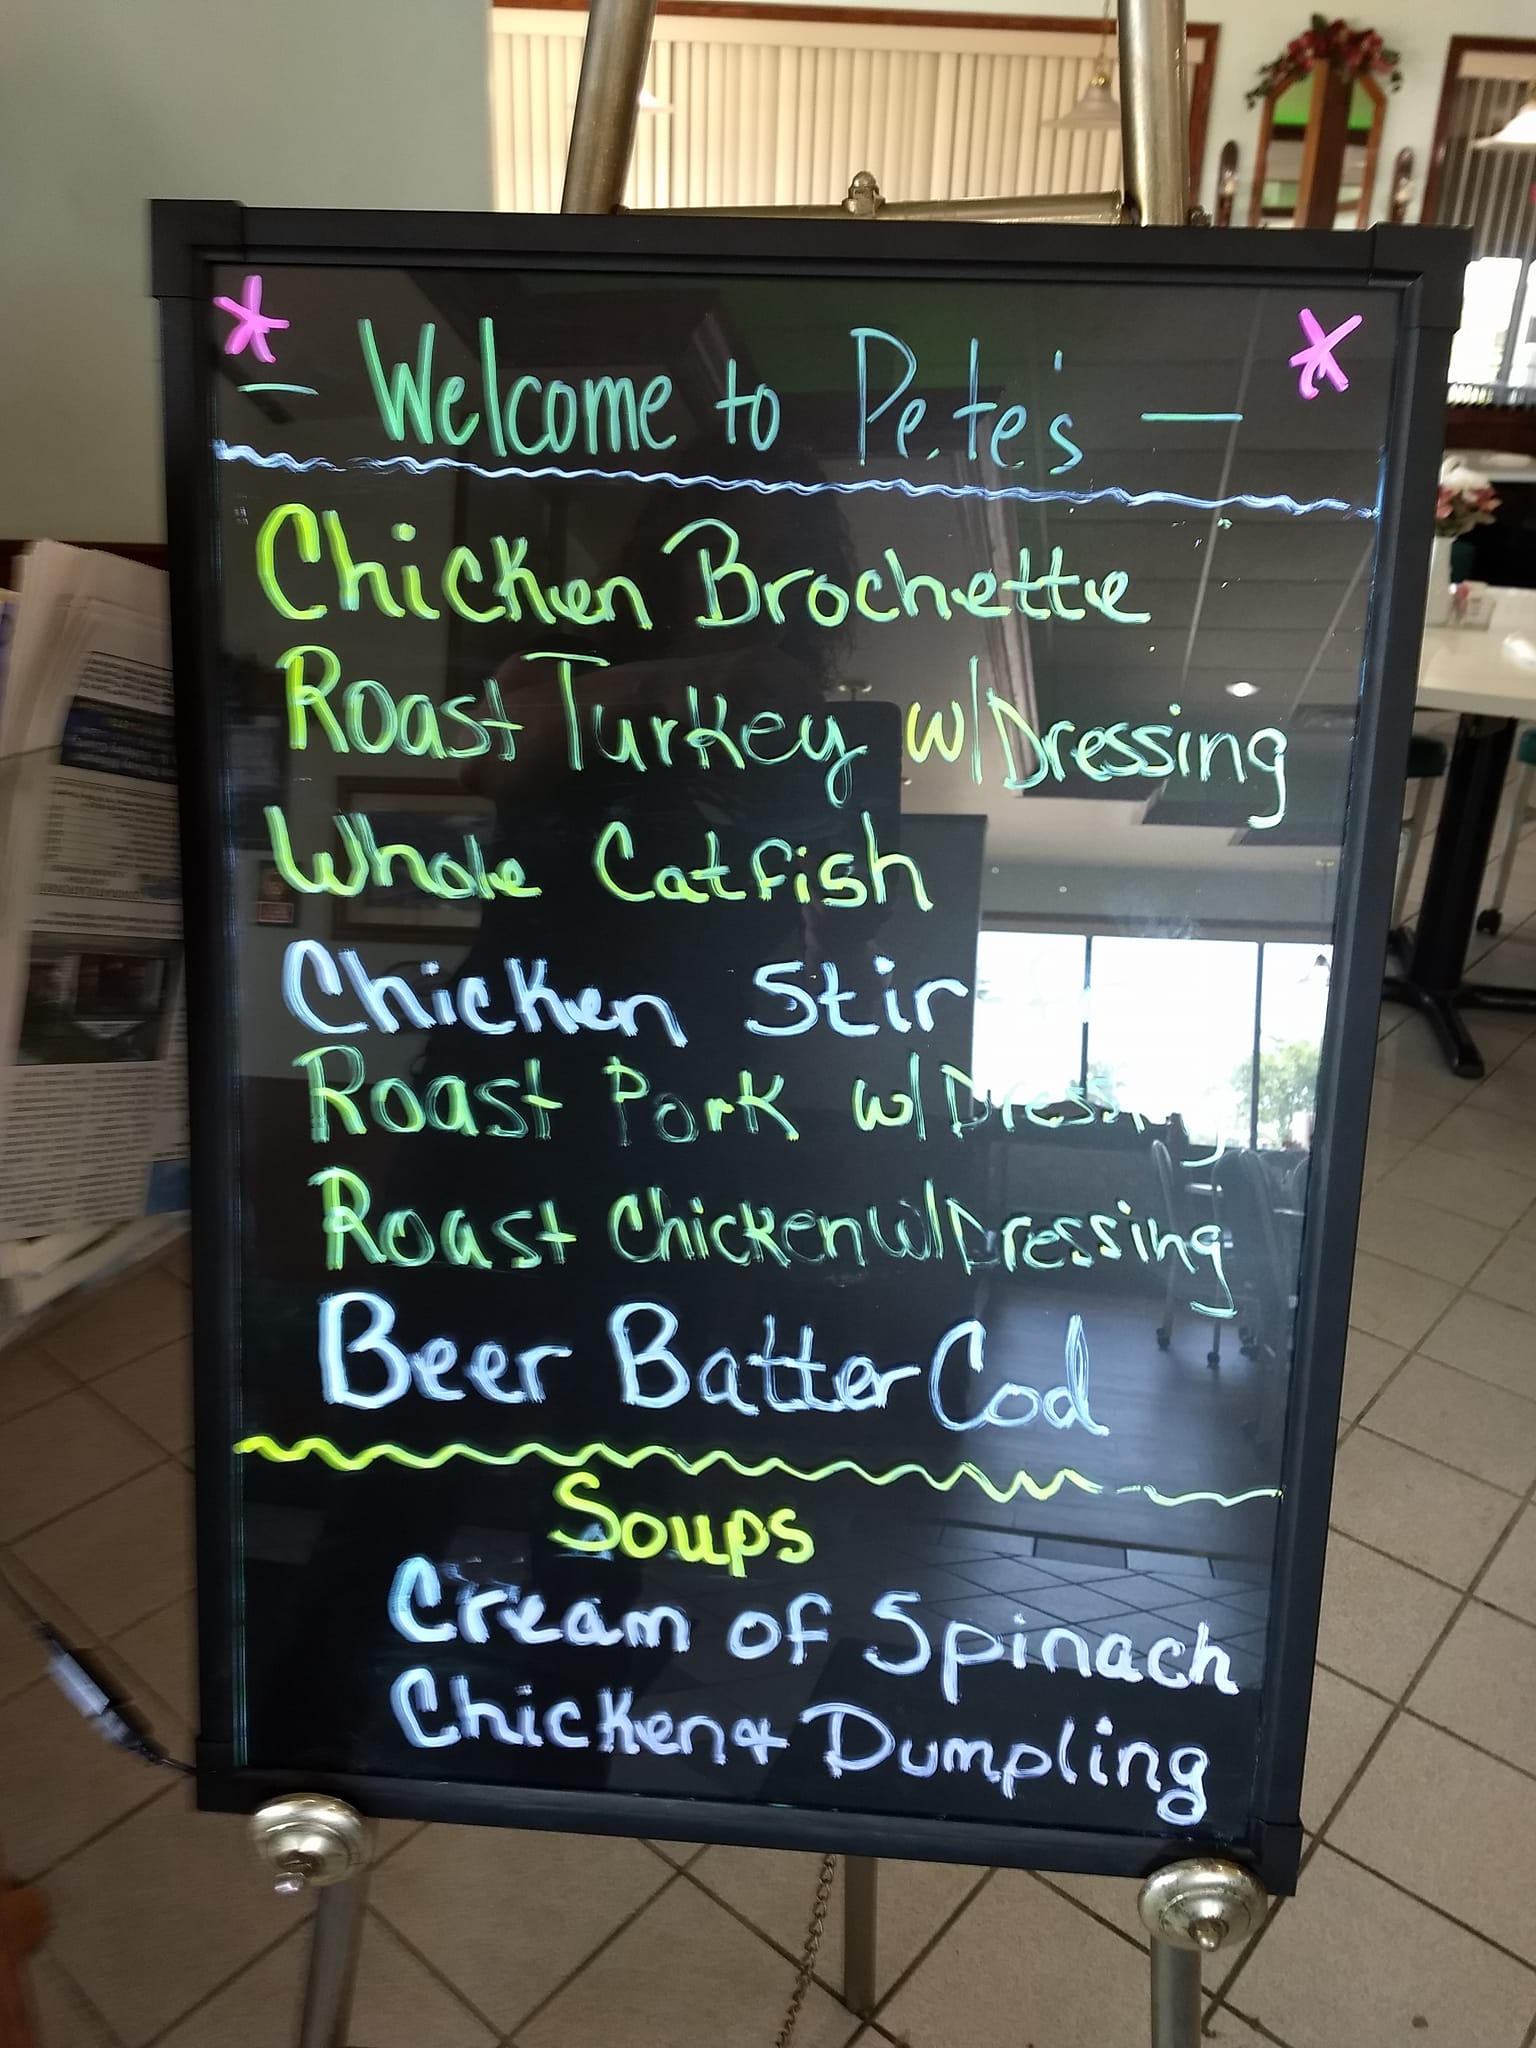 - Welcome to Pete's -
Chicken Brochette
Roast Turkey w/Dressing
Whole Catfish
Chicken Stir
Roast Pork w/Dressing
Roast Chicken w/Dressing
Beer Batter Cod
Soups
Cream of Spinach
Chicken & Dumpling